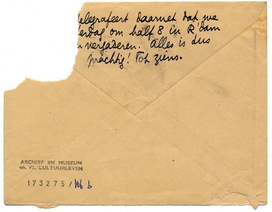 telegrafeert daarnet dat we
om half 8 in R'dam
vergaderen. Alles is dus
prachtig! Tot ziens.
ARCHIEF EN MUSEUM
VH. VL. CULTUURLEVEN
173275/16 b